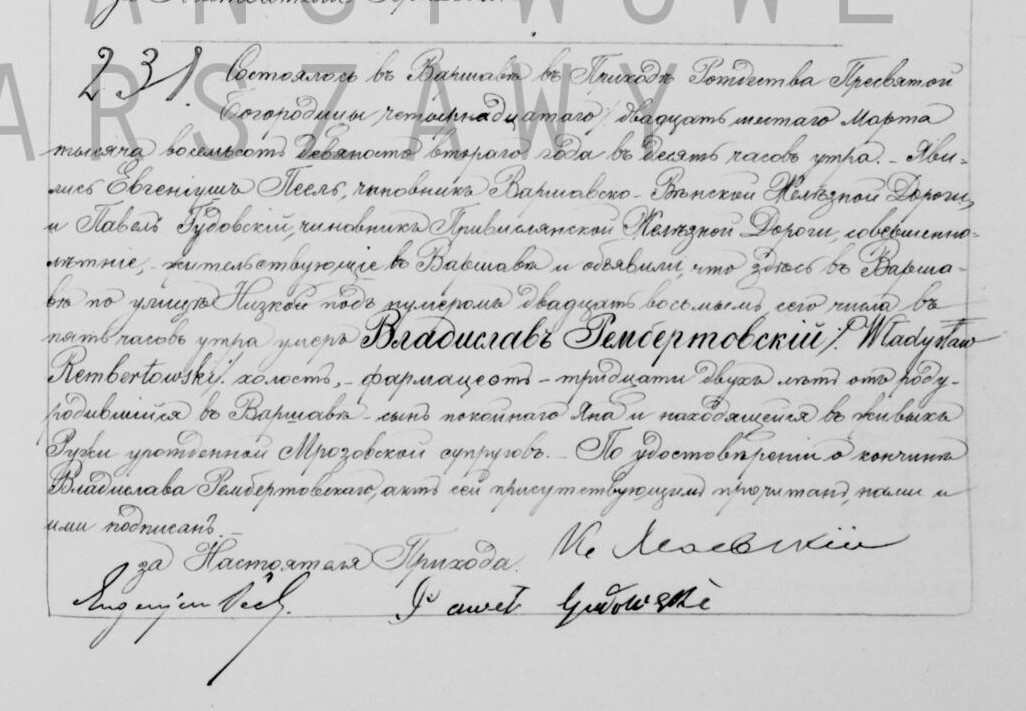 ARSZAWY
231
Состоялось въ Варшавѣ въ Приходѣ Рождества Пресвятой
Богородицы, четырнадцатаго /: двадцать шестаго Марта
тысяча восемьсотъ девяносто втораго года въ десять часовъ утра. – Яви-
лись Евгеніушъ Песль, чиновникъ Варшавско-Вѣнской Желѣзной Дороги,
и Павелъ Гудовскій, чиновникъ Привислянской Желѣзной Дороги, совершенно-
лѣтніе, жительствующіе въ Варшавѣ и объявили, что здѣсь въ Варша-
вѣ по улицѣ Низкой подъ нумеромъ двадцать восьмымъ, сего числа въ
пять часовъ утра умеръ Владиславъ Рембертовскій /: Władysław
Rembertowski :/ холостъ, – фармацевтъ – тридцати двухъ лѣтъ отъ роду –
родившійся въ Варшавѣ – сынъ покойнаго Яна и находящейся въ живыхъ
Ружи урожденной Мрозовской супруговъ. – По удостовѣреніи о кончинѣ
Владислава Рембертовскаго, актъ сей присутствующимъ прочитанъ, нами и
ими подписанъ. –
за Настоятеля Прихода.
Eugeniusz
Paweł Gudowski